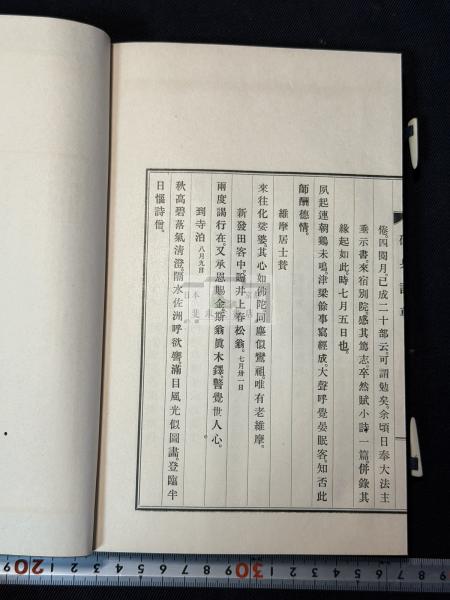 倦。四閱月。已成二十部云。可謂勉矣。余頃日奉大法主
垂示書。來宿別院。感其篤志。卒然賦小詩一篇。併錄其
緣起如此。時七月五日也。
夙起連朝鷄未鳴。津梁餘事寫經成。大聲呼覺晏眠客。知否此
師酬德情。
維摩居士贊
來往化娑婆。其心如佛陀。同塵似鸞祖。唯有老維摩。
新發田客中。賜井上春松翁。七月卅一日
兩度謁行在。又承恩賜金。斯翁眞木鐸。警覺世人心。
到寺泊 八月九日
秋高碧落氣清澄。隔水佐洲呼欲譍。滿目風光似圖畫。登臨半
日惱詩僧。
20 9 8 7 6 5 4 3 2 1 30 1 2 3 4 5 6 7 8 9